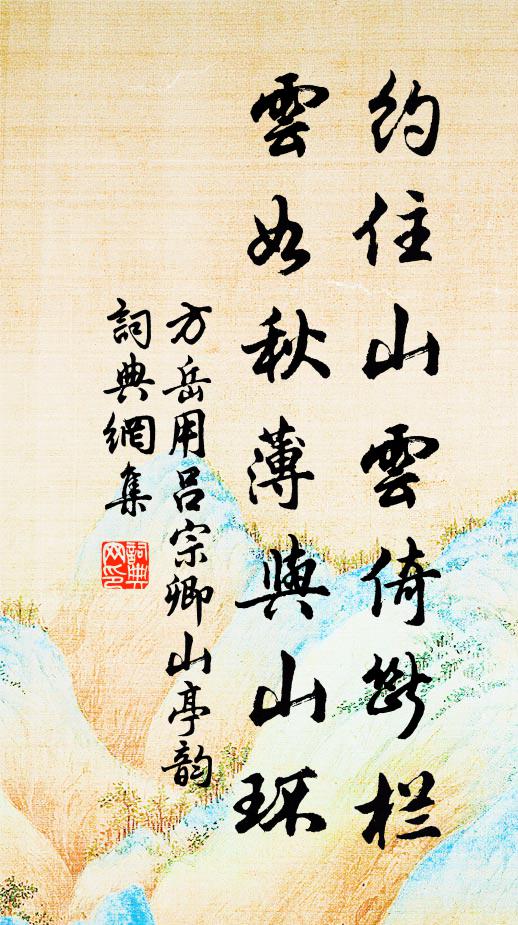 约住山雲倚斷栏
雲如秋薄與山环
方岳用吕宗卿山亭韵
詞典網集
詞典网印